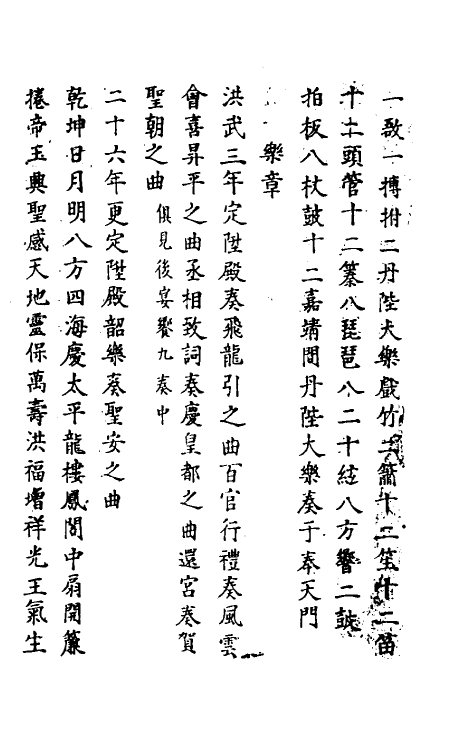 一敔一搏拊二丹陛大樂戲竹二簫十二笙十二笛
十二頭管十二篆八琵琶八二十絃八方響二鼓
拍板八杖鼓十二嘉靖間丹陛大樂奏于奉天門
樂章
洪武三年定陞殿奏飛龍引之曲百官行禮奏風雲
會喜昇平之曲丞相致詞奏慶皇都之曲還宮奏賀
聖朝之曲俱見後宴饗九奏中
二十六年更定陞殿韶樂奏聖安之曲
乾坤日月明八方四海慶太平龍樓鳳閣中扇開簾
捲帝王興聖感天地靈保萬壽洪福增祥光王氣生